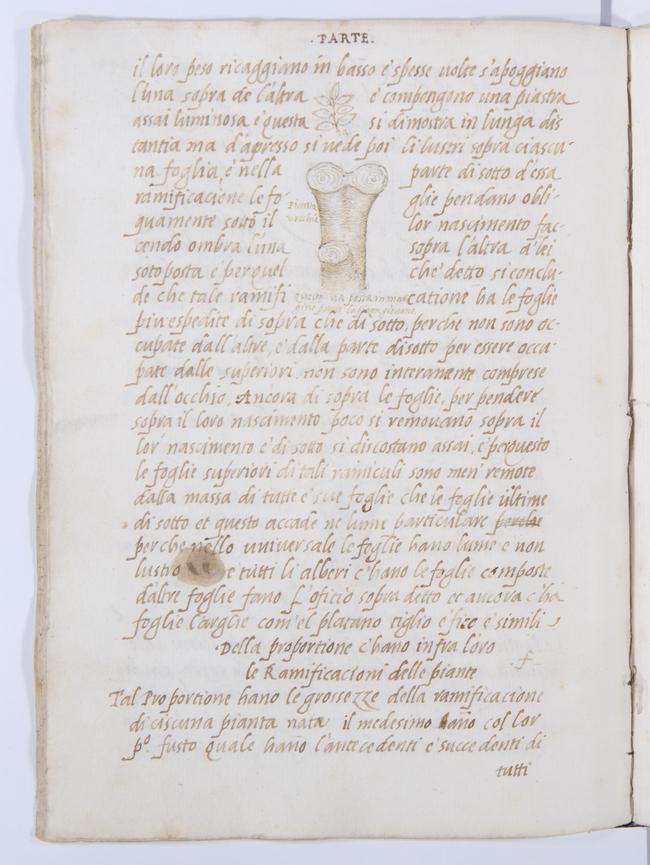 .PARTE.
il loro peso ricaggiano in basso e spesse volte s'apoggiano
l'una sopra de l'altra e compongono una piastra
assai luminosa e questa si dimostra in lunga dis
tantia ma d'apresso si vede poi li lustri sopra ciascu-
na foglia, e nella parte di sotto d'essa
ramificacione le fo- glie pendano obli-
quamente sotto il lor nascimento fac-
cendo ombra l'una sopra l'altra a lei
sotoposta e per quel che detto si conclu-
de che tale ramifi catione ha le foglie
piu espedite di sopra che di sotto, perche non sono oc-
cupate dall'altre, e dalla parte disotto per essere occu-
pate dalle superiori, non sono interamente comprese
dall'occhio, Ancora di sopra le foglie, per pendere
sopra il loro nascimento poco si removano sopra il
lor nascimento e di sotto si discostano assai, e perquesto
le foglie superiori di tali ramiculi sono men' remote
dalla massa di tutte e sue foglie che le foglie ultime
di sotto et questo accade ne lume particulare perche
perche nello universale le foglie hano lume e non
lustro e tutti li alberi c'hano le foglie composte
d'altre foglie fano l'oficio sopra detto et ancora c'ha
foglie larghe com'el platano tiglio e fico e simili
Della proportione c'hano infra l'oro
le Ramificacioni delle piante
Tal Proportione hano le grossezze della ramificacione
di ciscuna pianta nata il medesimo año col lor
p.º fusto quale hano l'antecedenti e succedenti di
tutti